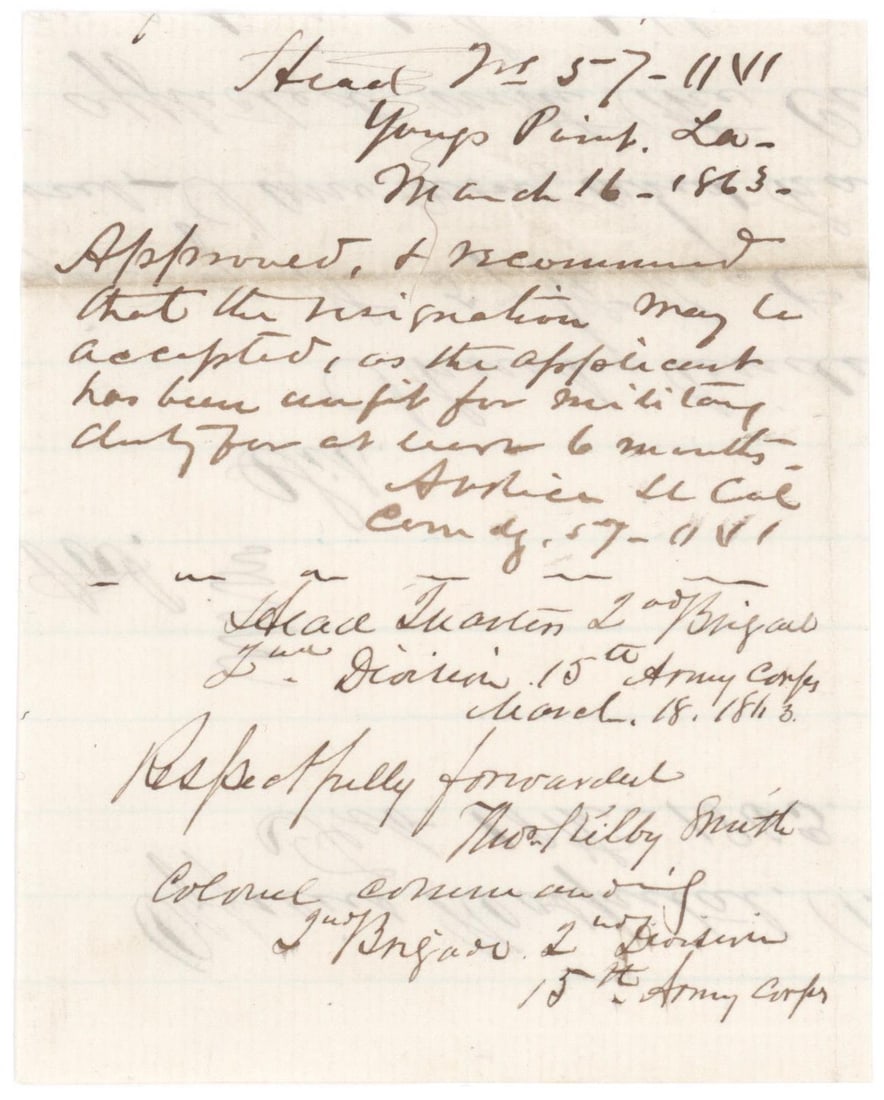 Head Qrs 57 - Ill Vl
Youngs Point. La -
March 16 - 1863 -
Approved, & recommend
that the resignation may be
accepted, as the applicant
has been unfit for military
duty for at least 6 months -
A v Rice Lt Col
Comdg. 57 - Ill Vl
Head Quarters 2nd Brigade
2nd Division 15th Army Corps
March. 18. 1863.
Respectfully forwarded
Thos. Kilby Smith
Colonel commanding
2nd Brigade. 2nd Division
15th Army Corps